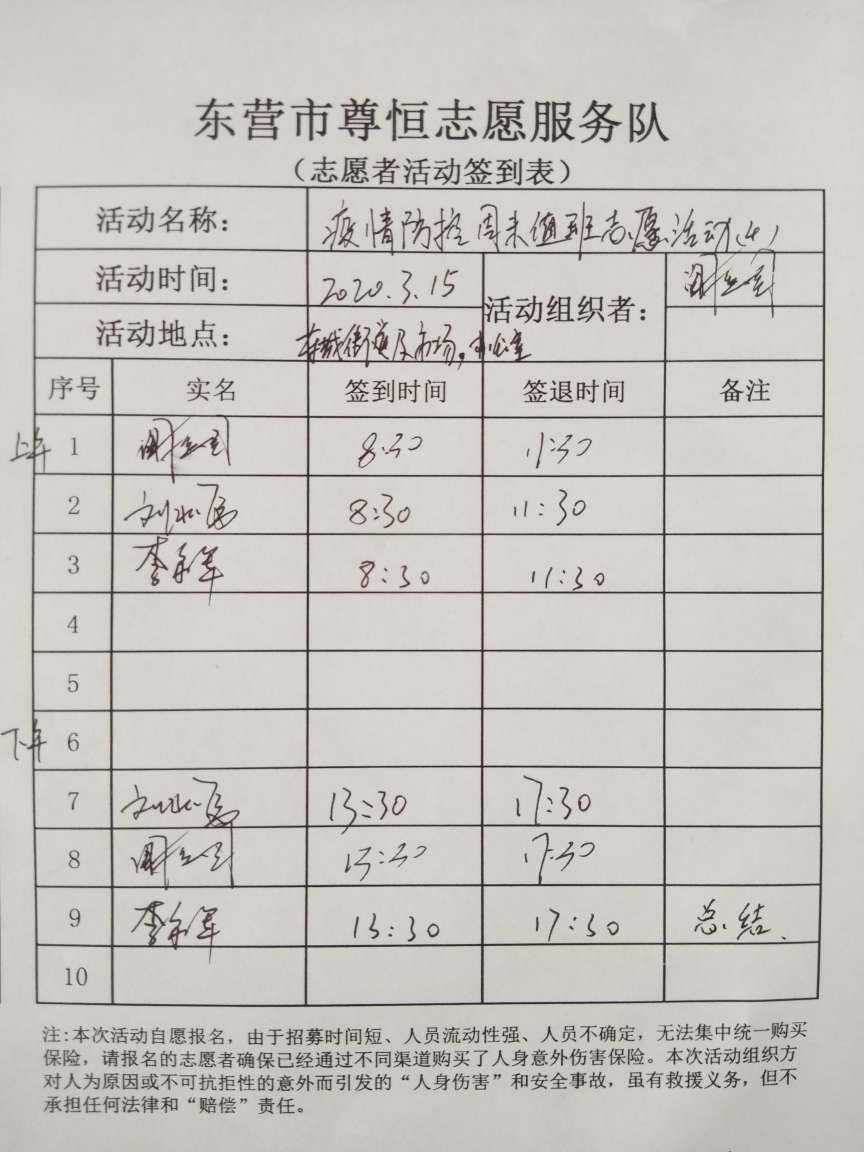 东营市尊恒志愿服务队
（志愿者活动签到表）
活动名称： 疫情防控周末值班志愿活动(4)
活动时间： 2020.3.15 活动组织者：
活动地点： 东城街道及市场,办公室
序号 实名 签到时间 签退时间 备注
上午 1 8:30 11:30
2 8:30 11:30
3 8:30 11:30
4
5
下午 6
7 13:30 17:30
8 13:30 17:30
9 13:30 17:30 总结.
10
注:本次活动自愿报名，由于招募时间短、人员流动性强、人员不确定，无法集中统一购买
保险，请报名的志愿者确保已经通过不同渠道购买了人身意外伤害保险。本次活动组织方
对人为原因或不可抗拒性的意外而引发的“人身伤害”和安全事故，虽有救援义务，但不
承担任何法律和“赔偿”责任。